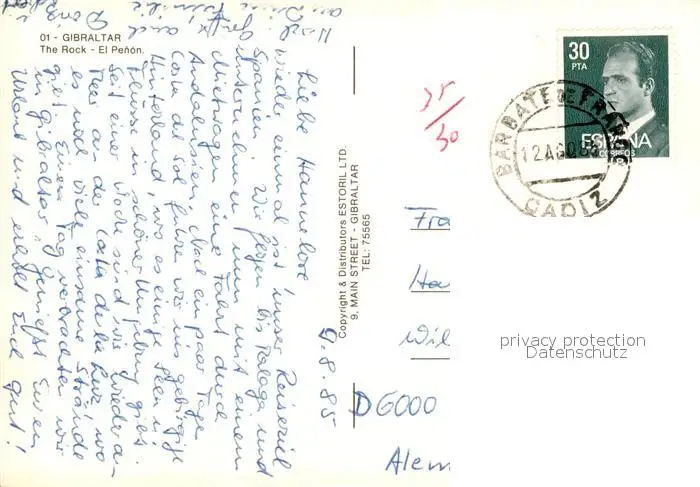 01 - GIBRALTAR
The Rock - El Peñón.
9.8.85
Liebe Hannelore
wieder einmal ist unser Reiseziel
Spanien. Wir flogen bis Malaga und
unternehmen nun mit einem
Mietwagen eine Fahrt durch
Andalusien. Nach ein paar Tage
Costa del Sol fuhren wir ins gebirgige
Hinterland, wo es einige Seen u.
Flüsse in schöner Umgebung gibt.
Seit einer Woche sind wir wieder am
Meer an der Costa de la Luz wo
es noch viele einsame Strände
gibt. Einen Tag verbrachten wir
in Gibraltar. Genießt Euren
Urlaub und erholt Euch gut!
Copyright & Distributors ESTORIL LTD.
9, MAIN STREET - GIBRALTAR
TEL: 75565
30
PTA
ESPAÑA
CORREOS
BARBATE DE FRANCO
12 AGO 85
CADIZ
35/30
Fra
Ha
Wil
D 6000
Alem
privacy protection
Datenschutz